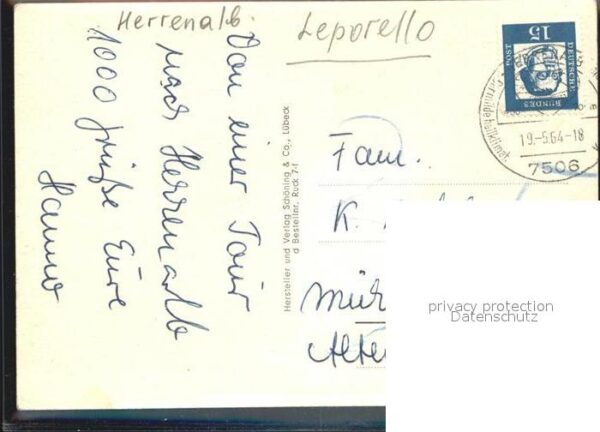 Herrenalb.
Leporello
Von einer Tour
nach Herrenalb
1000 Grüße Eure
Hanno
Hersteller und Verlag Schöning & Co., Lübeck
Bestellnr. Ruck 7-f
15
DEUTSCHE
BUNDES
POST
19.-5.64-18
7506
Fam.
K.
privacy protection
Datenschutz